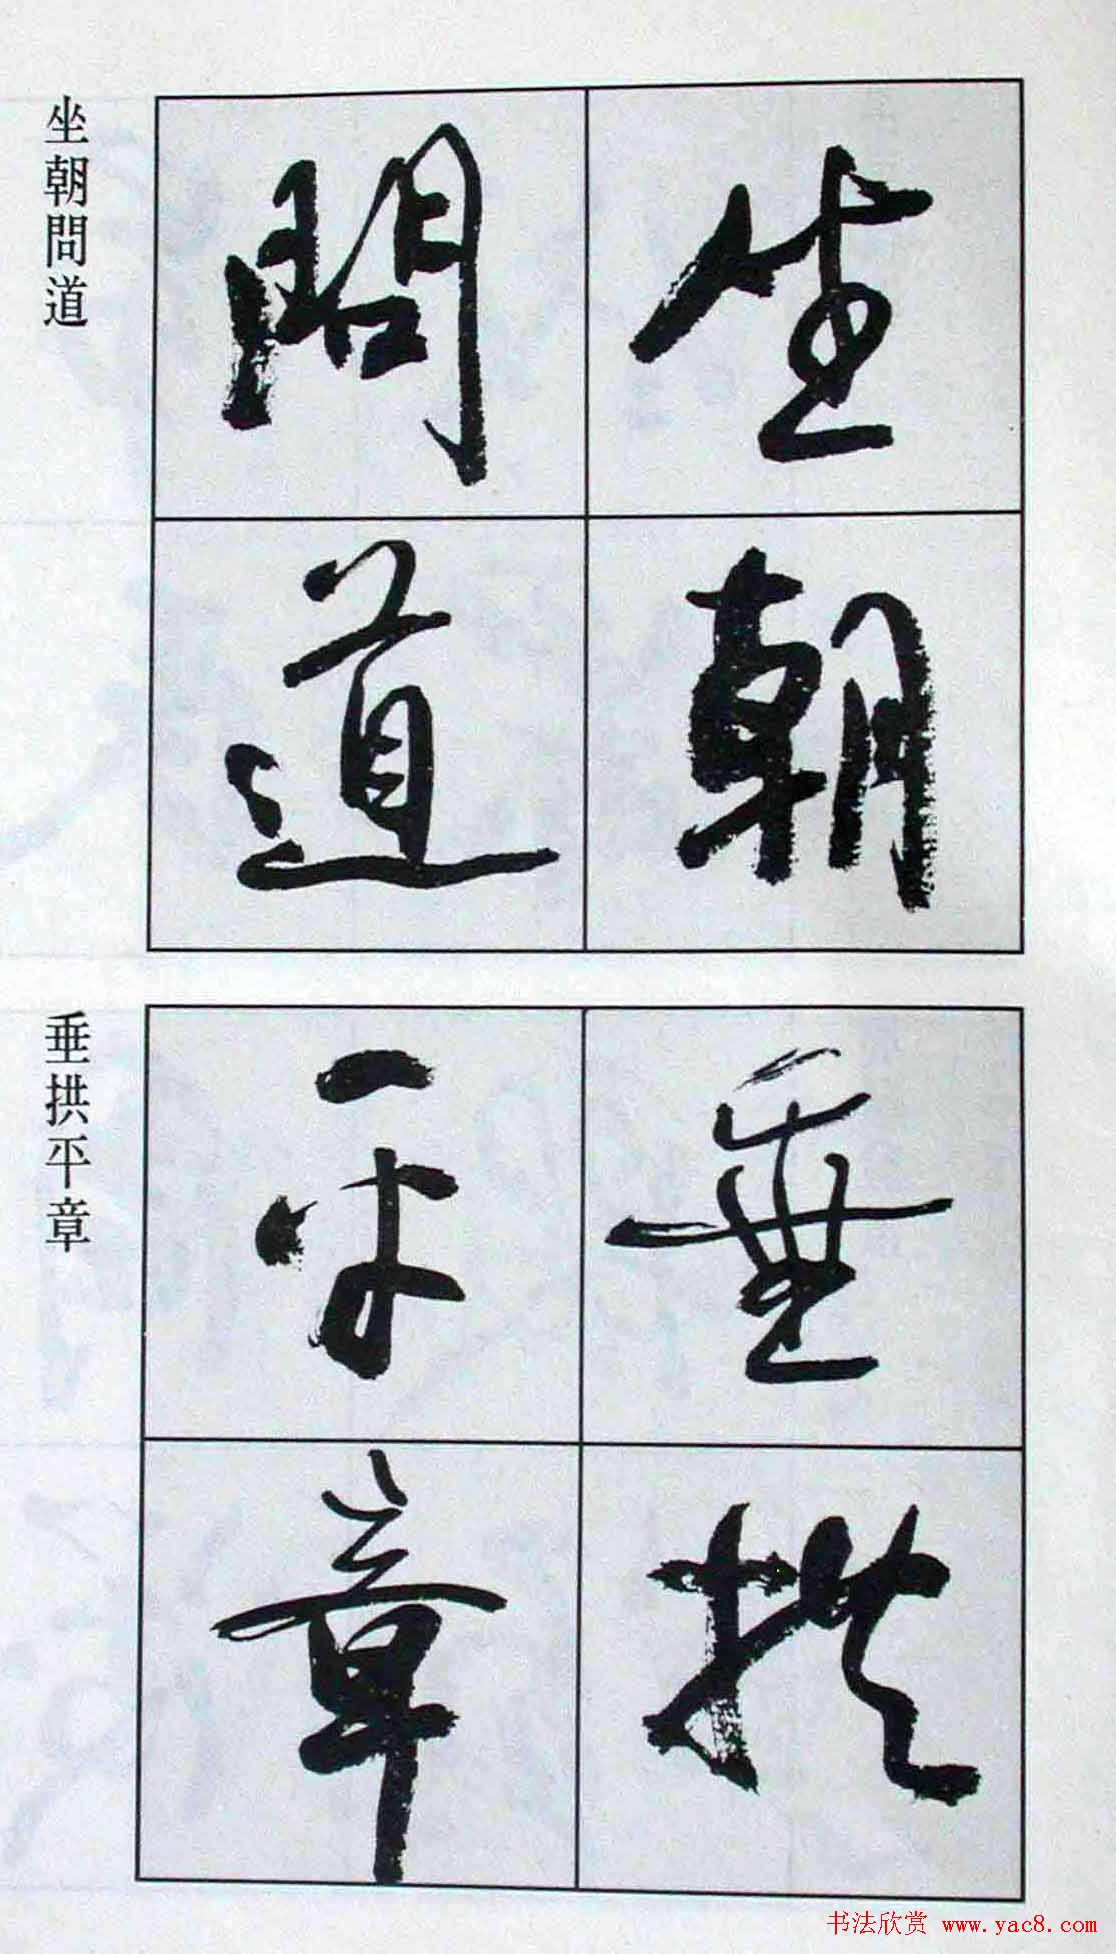 坐朝
問道
坐朝問道
垂拱
平章
垂拱平章
书法欣赏 www.yac8.com